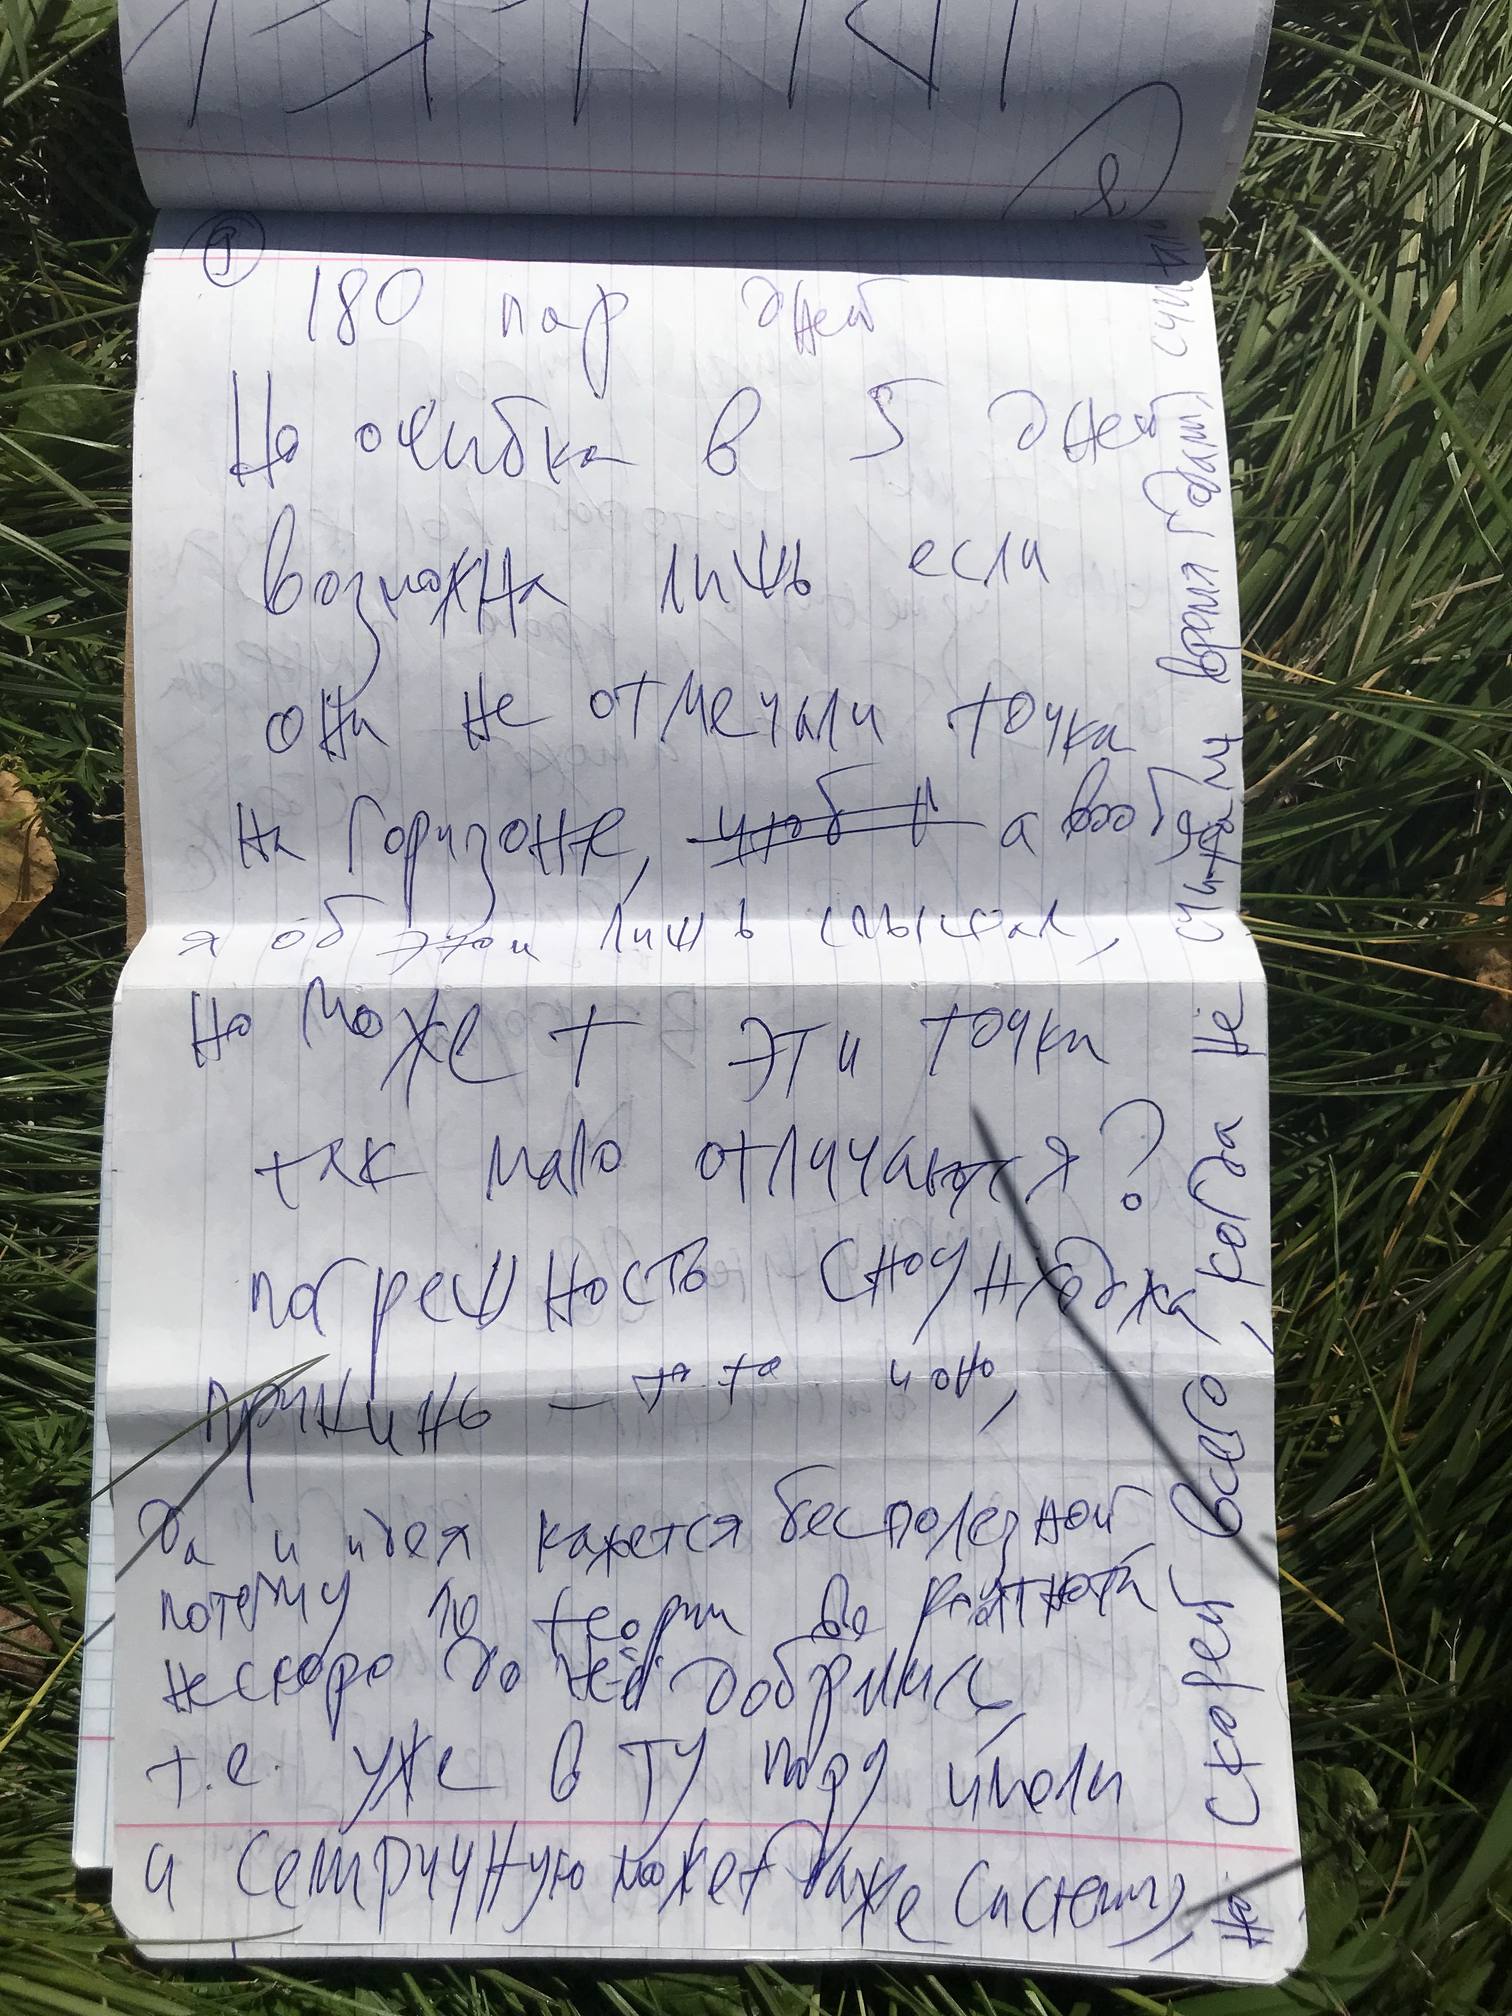 9
180 пар дней
Но ошибка в 5 дней
возможна лишь если
они не отмечали точка
на горизонте, чтоб а вооб
я об этом лишь слышал,
Но может эти точки
так мало отличаются?
погрешность
прикинь – та-та и оно,
Да и идея кажется бесполезной
потому по теории
нескоро до неё добрались,
т.е. уже в ту пору имели
и сетричную может даже систему,
Но скорей всего, когда не
считали время годами,